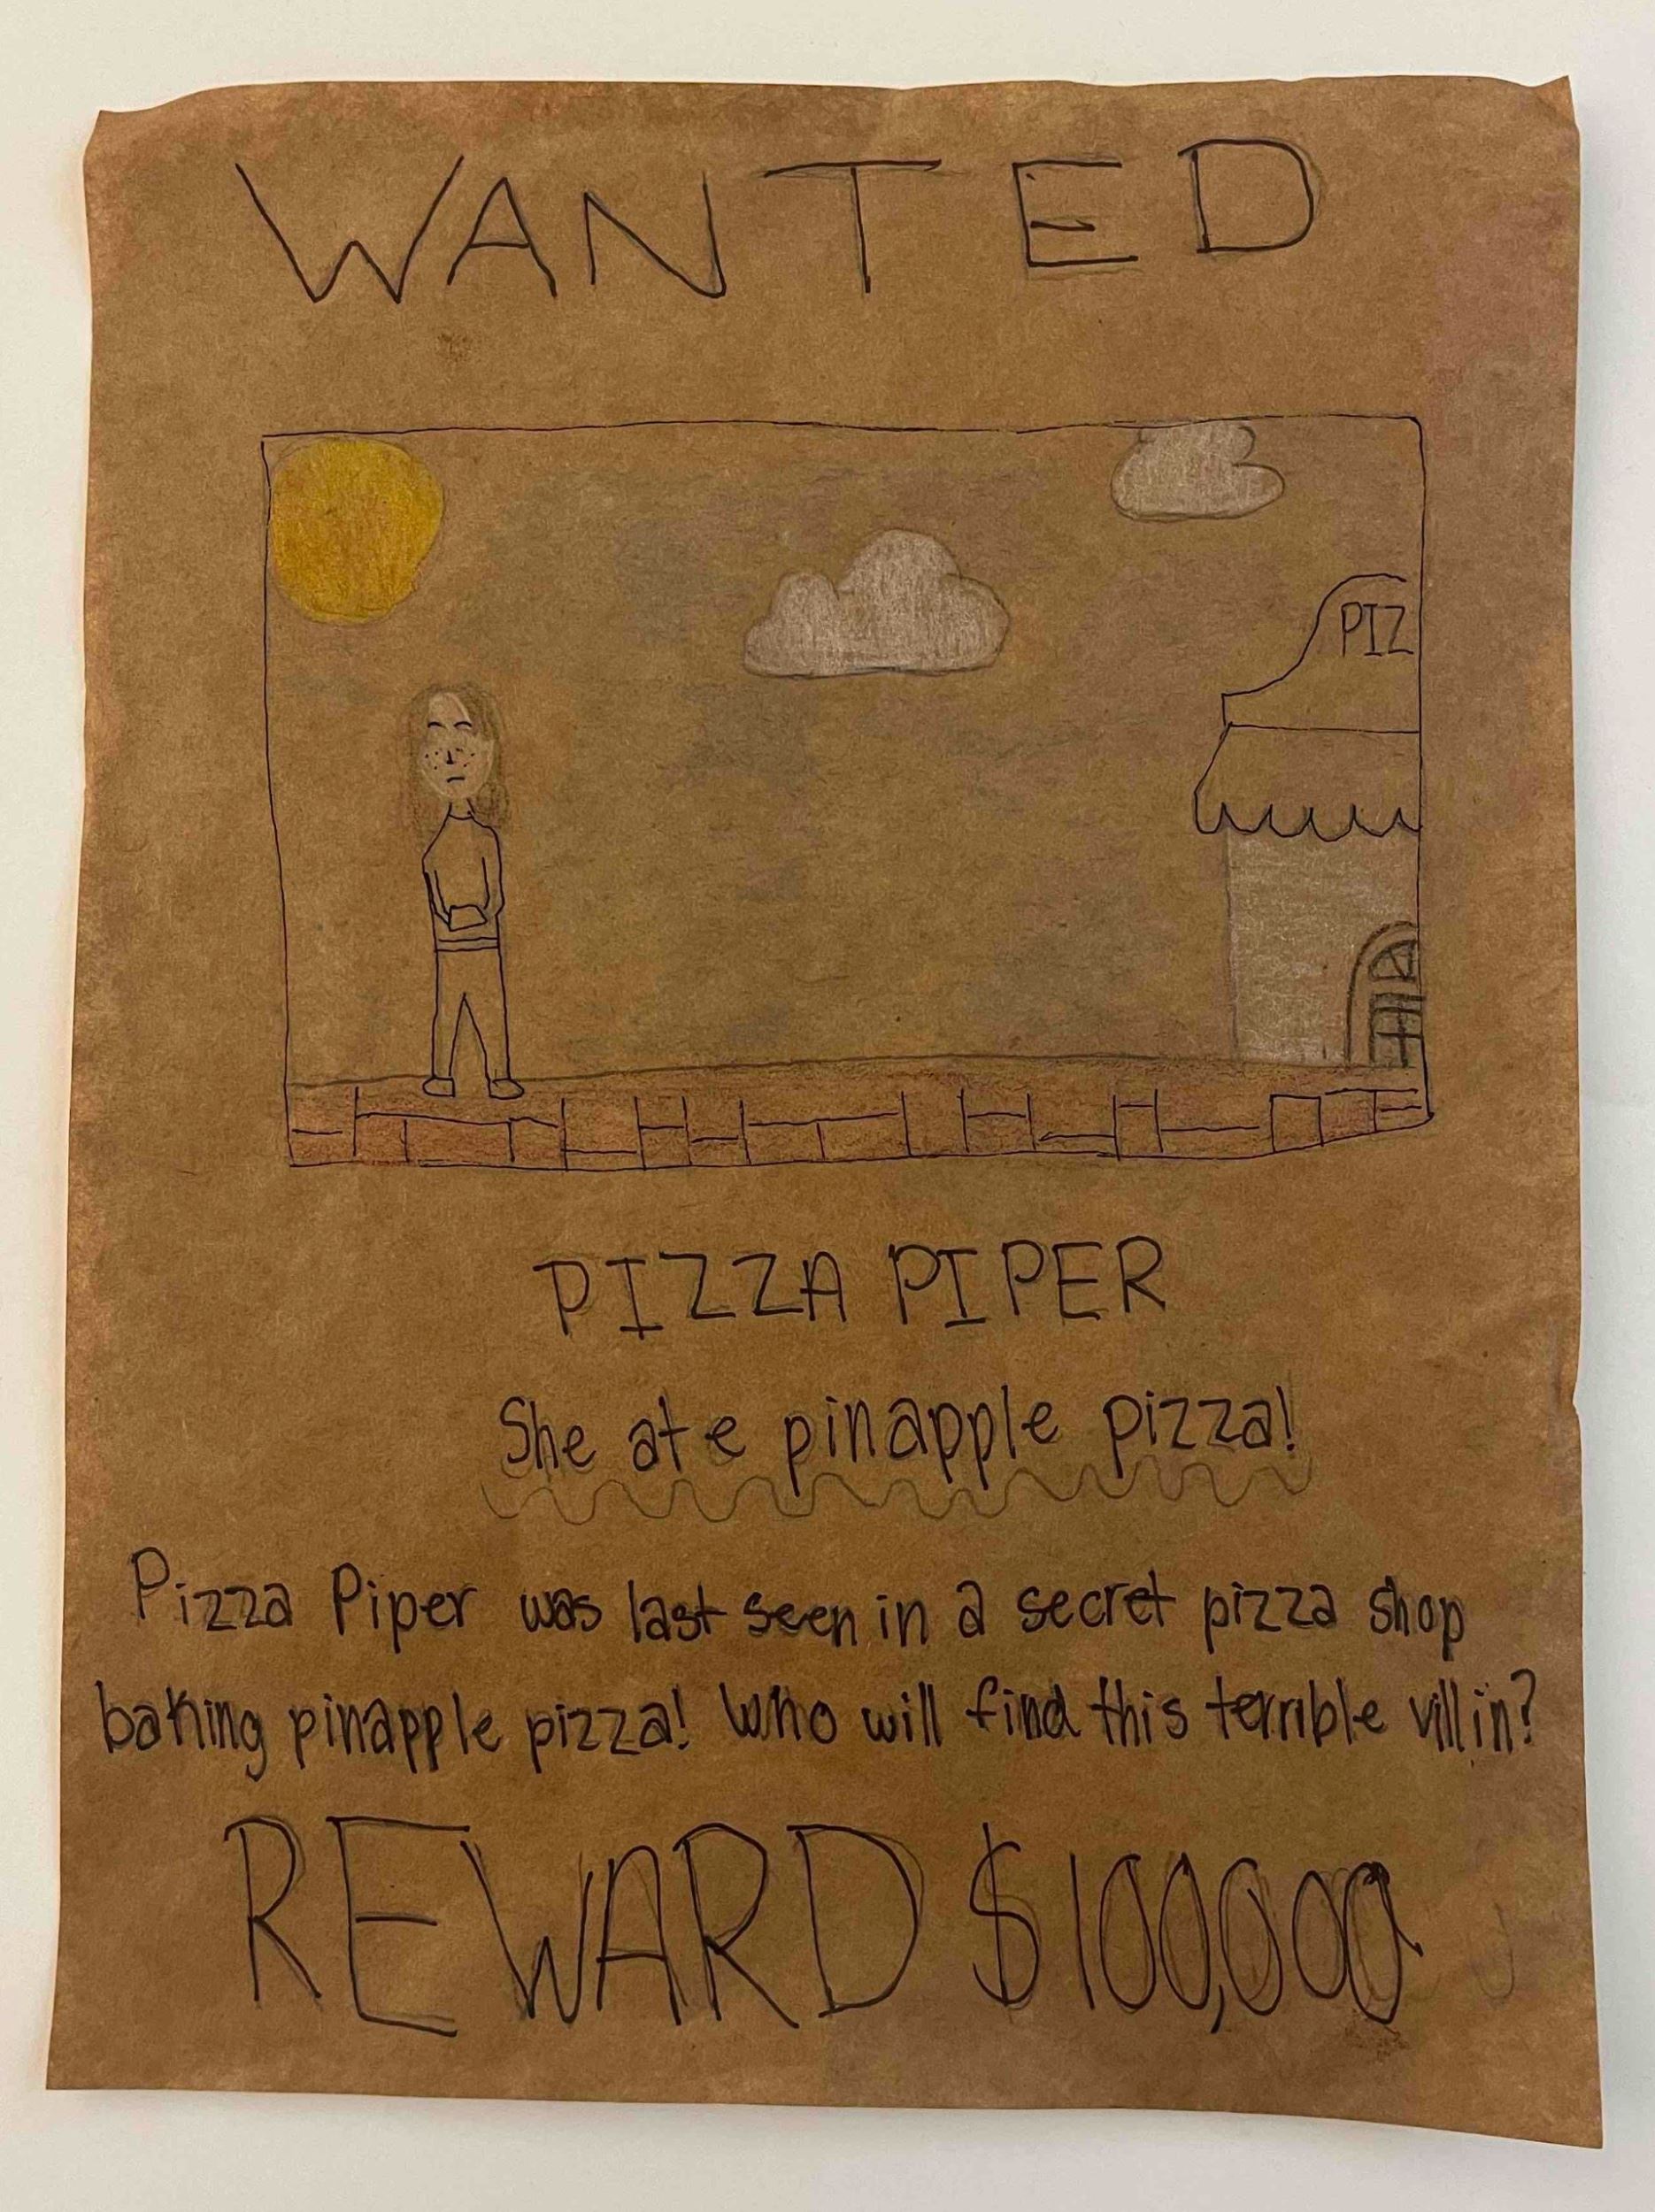 WANTED
PIZ
PIZZA PIPER
She ate pinapple pizza!
Pizza Piper was last seen in a secret pizza shop
baking pinapple pizza! Who will find this terrible villin?
REWARD $100,000